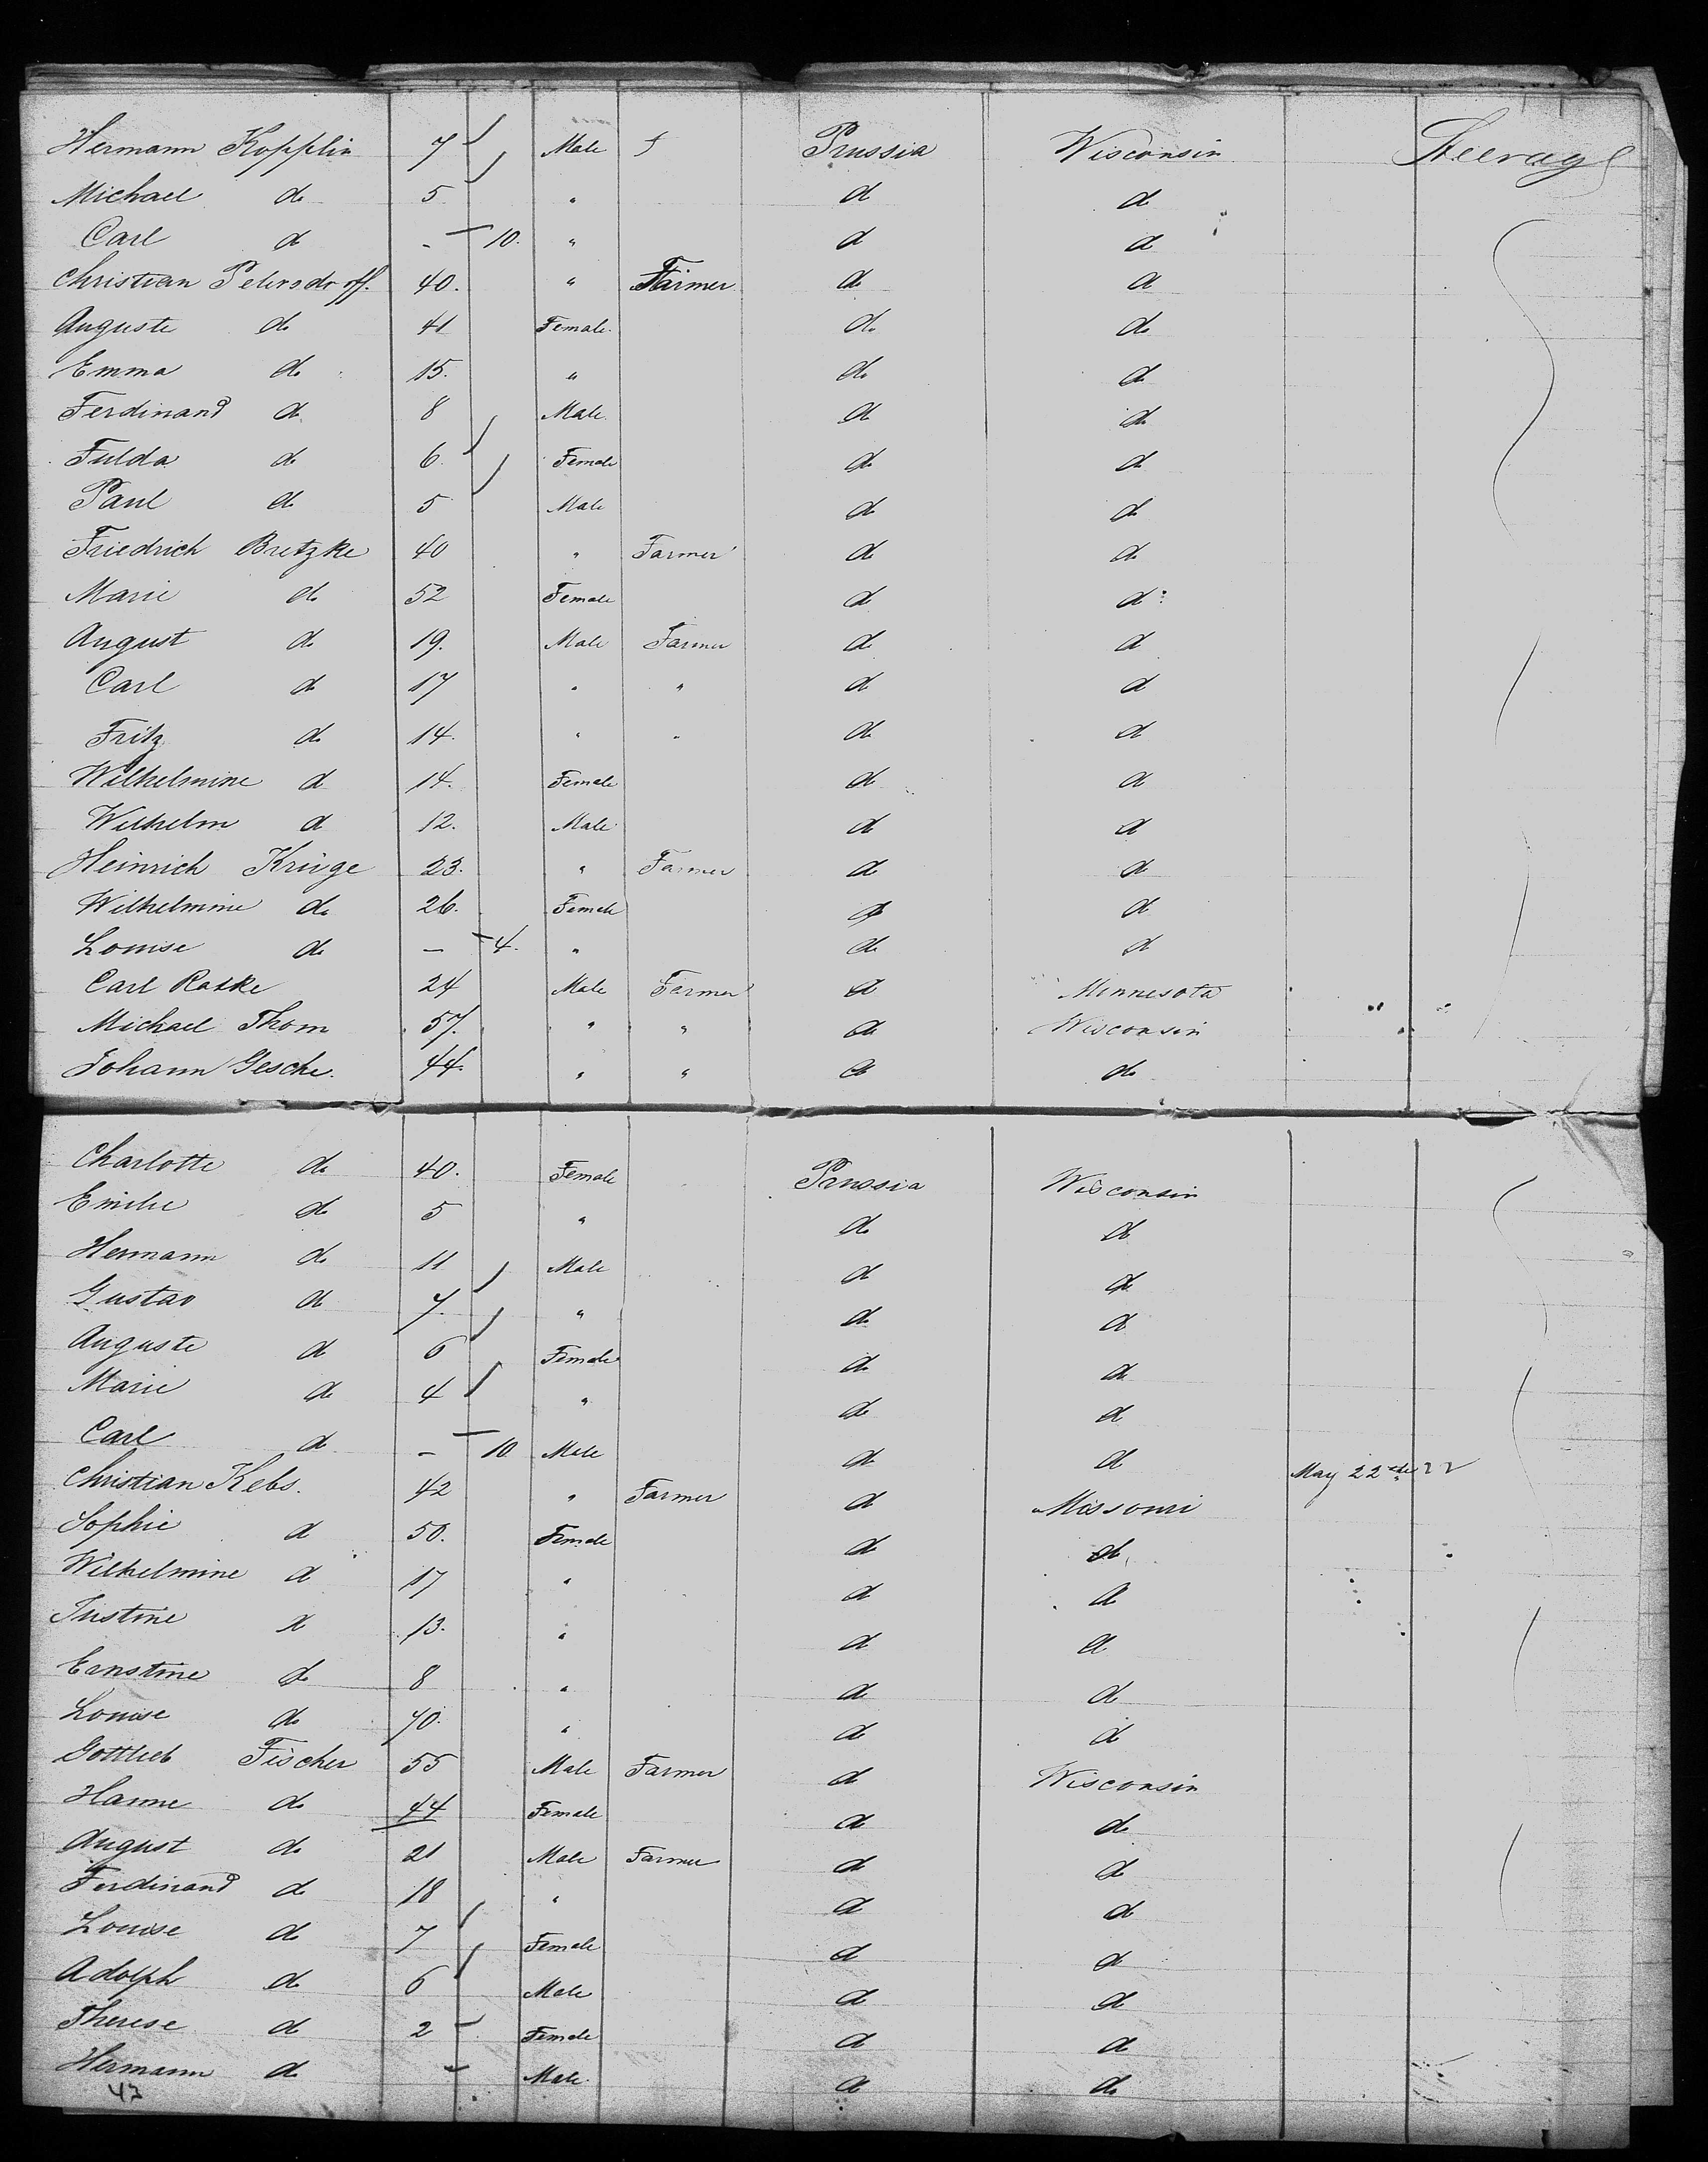 Hermann Kopplin 7 Male Prussia Wisconsin Steerage
Michael do 5 " d d
Carl d - 10. " d d
Christian Petersdorff. 40. " Farmer d d
Auguste do 41 Female. do do
Emma do 15. " do d
Ferdinand d 8 Male. d d
Fulda do 6. Female d d
Paul do 5 Male d d
Friedrich Bretzke 40 " Farmer d d
Marie do 52 Female d d
August do 19. Male Farmer d d
Carl d 17 " " d d
Fritz do 14. " " d d
Wilhelmine d 14. Female d d
Wilhelm d 12. Male d d
Heinrich Krüge 23. " Farmer d d
Wilhelmine do 26. Female d d
Louise do - 4. " do d
Carl Raske 24 Male Farmer d Minnesota
Michael Thom 57. " " d Wisconsin
Johann Gesche. 44. " " d do
Charlotte do 40. Female Prussia Wisconsin
Emilie do 5 " do d
Hermann do 11 Male d d
Gustav d 7. " d d
Auguste d 6 Female d d
Marie d 4 " do d
Carl d - 10 Male d d
Christian Kebs. 42 " Farmer d Missouri May 22
Sophie d 50. Female d do
Wilhelmine d 17 " d d
Justine d 13. " d d
Ernstine do 8 " d d
Louise do 70. " d d
Gottlieb Fischer 55 Male Farmer d Wisconsin
Hanne do 44 Female d do
August do 21 Male Farmer d d
Ferdinand do 18 " d d
Louise do 7 Female d d
Adolph do 6 Male d d
Therese d 2 - Female d d
Hermann do - Male. d do
43